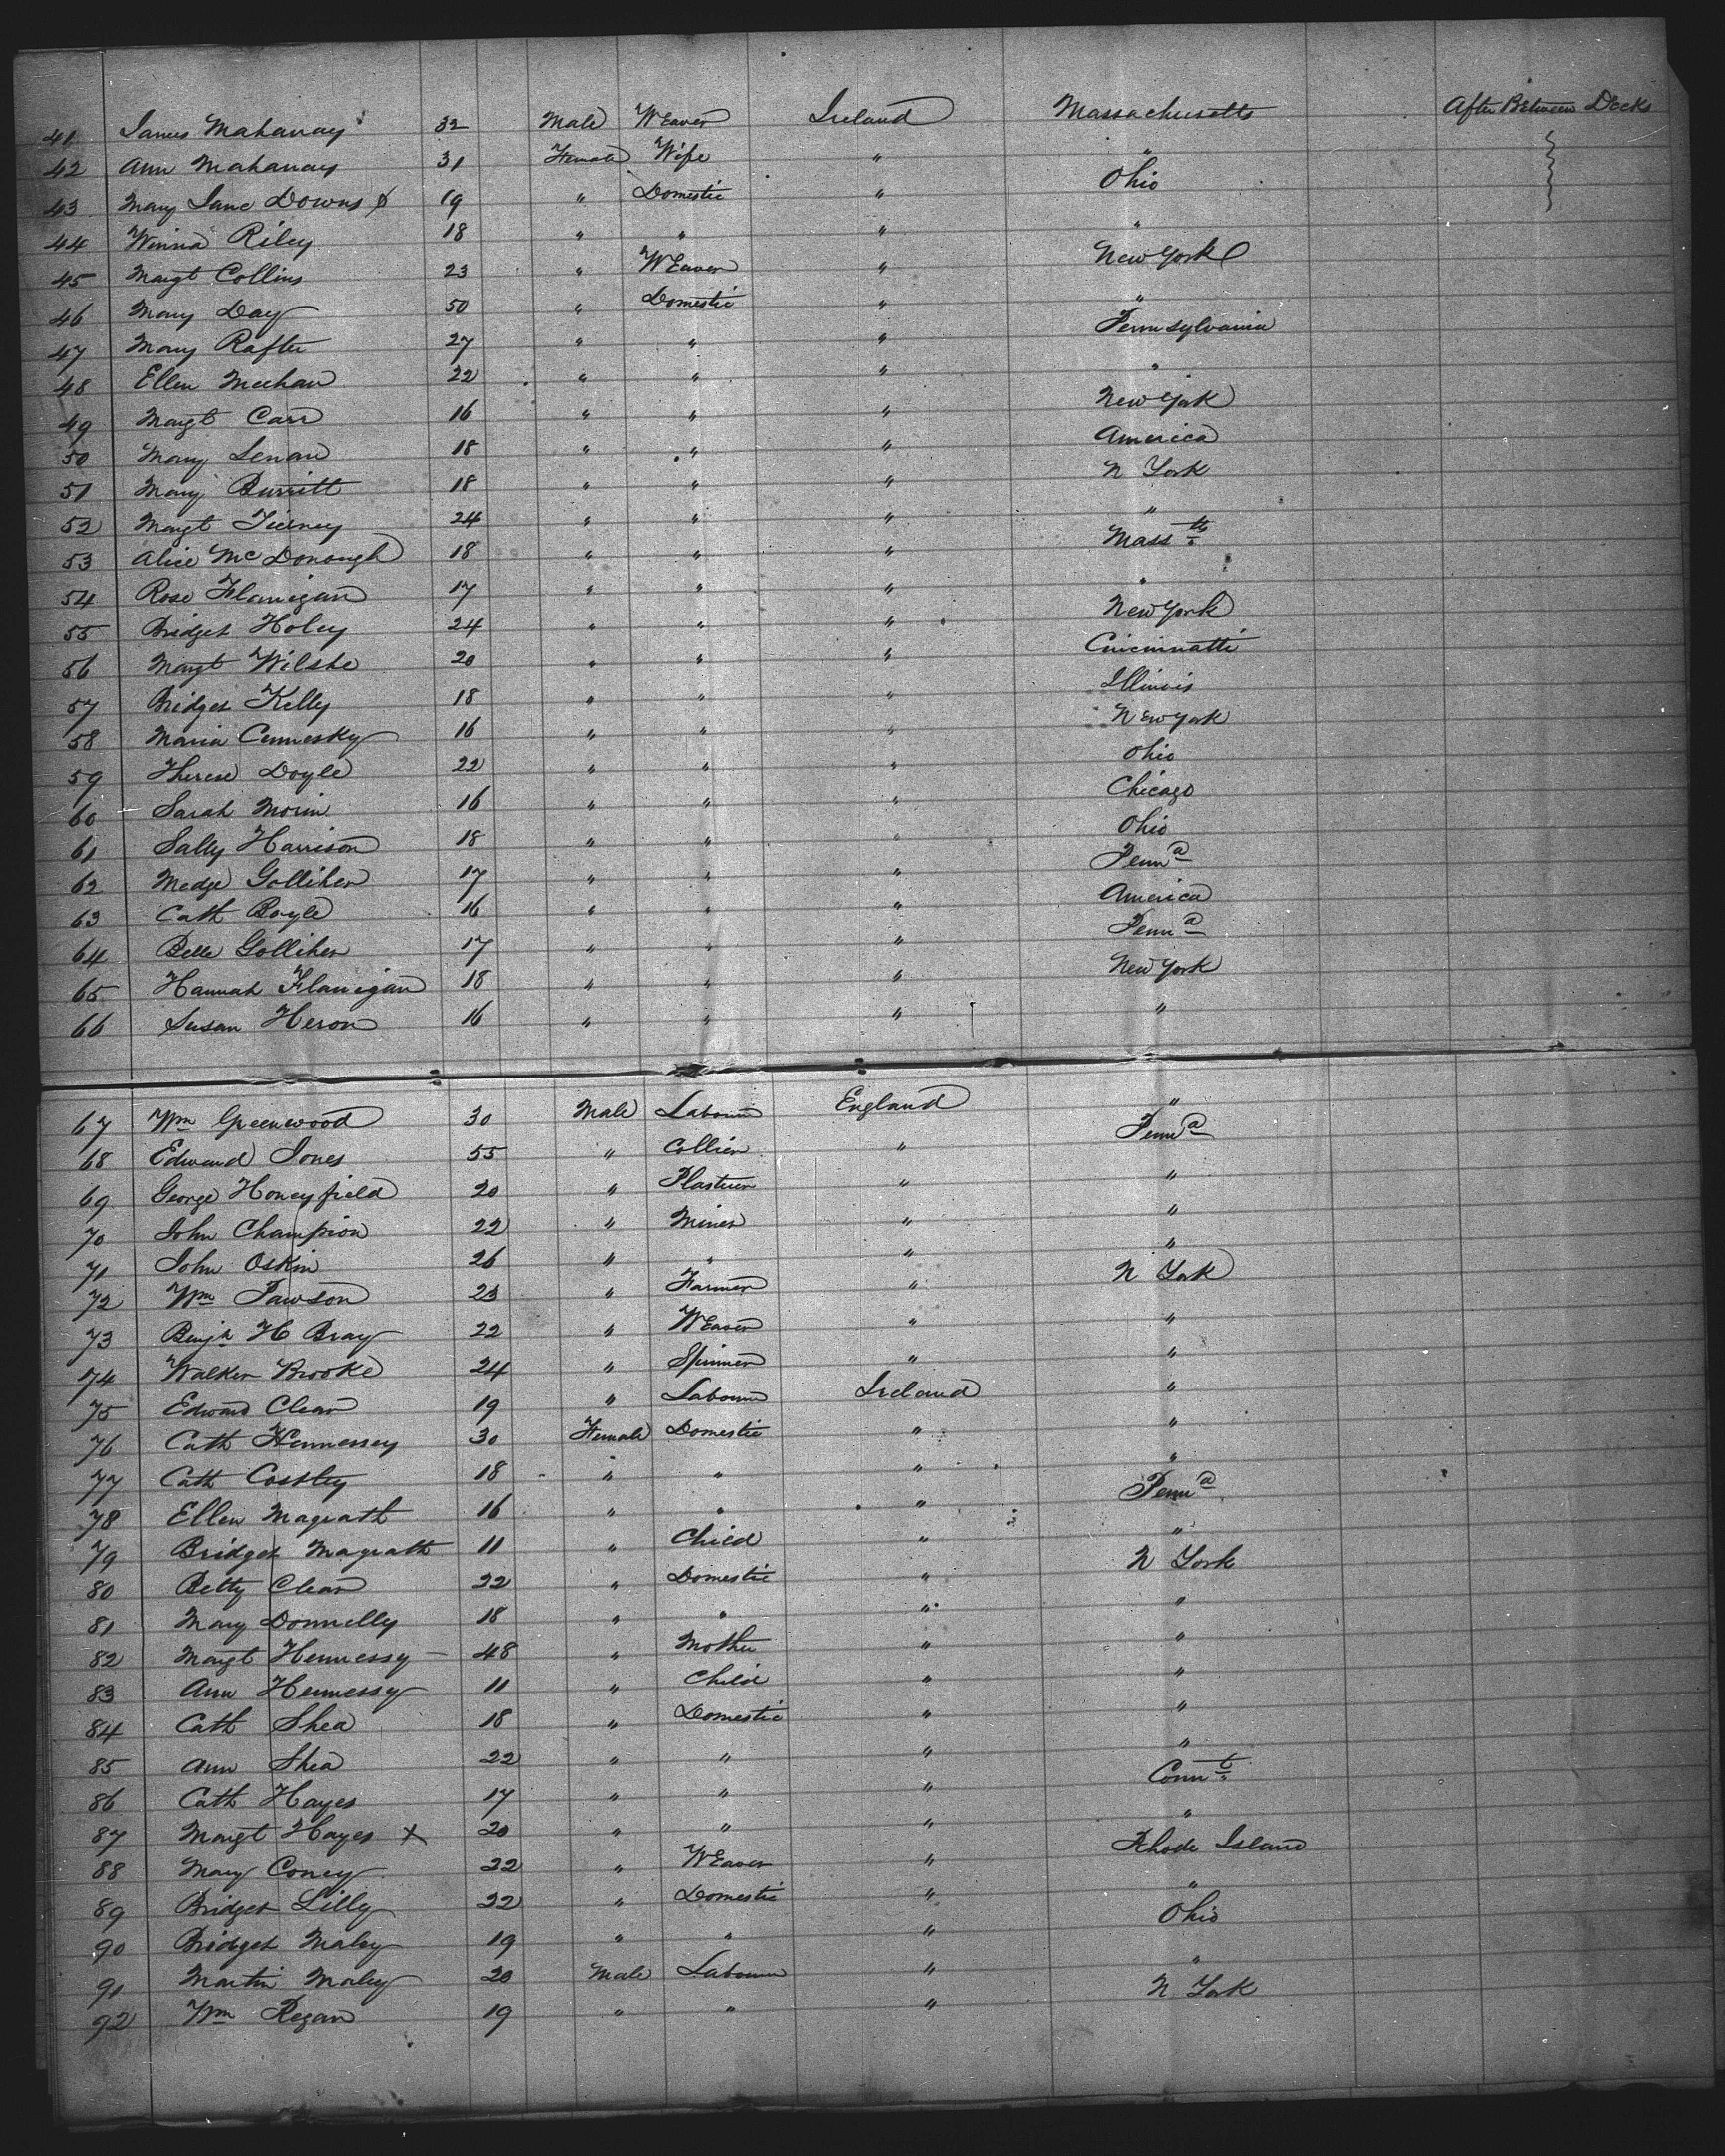 41 James Mahanay 32 Male Weaver Ireland Massachusetts After Between Decks
42 Ann Mahanay 31 Female Wife " "
43 Mary Jane Downs 19 " Domestic " Ohio
44 Winna Riley 18 " " " "
45 Margt Collins 23 " Weaver " New York
46 Mary Day 50 " Domestic " "
47 Mary Rafter 27 " " " Pennsylvania
48 Ellen Meehan 22 " " " "
49 Margt Carr 16 " " " New York
50 Mary Lenan 18 " " " America
51 Mary Burritt 18 " " " N York
52 Margt Tierney 24 " " " "
53 Alice McDonough 18 " " " Masstts
54 Rose Flanigan 17 " " " "
55 Bridget Holey 24 " " " New York
56 Margt Wilshe 20 " " " Cincinnatti
57 Bridget Kelly 18 " " " Illinois
58 Maria Cennesky 16 " " " New York
59 Therese Doyle 22 " " " Ohio
60 Sarah Morin 16 " " " Chicago
61 Sally Harrison 18 " " " Ohio
62 Medge Golliher 17 " " " Penna
63 Cath Boyle 16 " " " America
64 Belle Golliher 17 " " " Penna
65 Hannah Flanigan 18 " " " New York
66 Susan Heron 16 " " " "
67 Wm Greenwood 30 Male Labourer England "
68 Edward Jones 55 " Collier " Penna
69 George Honeyfield 20 " Plasterer " "
70 John Champion 22 " Miner " "
71 John Oskin 26 " " " "
72 Wm Pawson 23 " Farmer " N York
73 Benjn H Bray 22 " Weaver " "
74 Walker Brooke 24 " Spinner " "
75 Edward Clear 19 " Labourer Ireland "
76 Cath Hennessey 30 Female Domestic " "
77 Cath Costley 18 " " " "
78 Ellen Magrath 16 " " " Penna
79 Bridget Magrath 11 " Child " "
80 Betty Clear 22 " Domestic " N York
81 Mary Donnelly 18 " " " "
82 Margt Hennessy 48 " Mother " "
83 Ann Hennessy 11 " Child " "
84 Cath Shea 18 " Domestic " "
85 Ann Shea 22 " " " "
86 Cath Hayes 17 " " " Connt
87 Margt Hayes X 20 " " " "
88 Mary Coney 22 " Weaver " Rhode Island
89 Bridget Lilly 22 " Domestic " "
90 Bridget Maley 19 " " " Ohio
91 Martin Maley 20 Male Labourer " "
92 Wm Regan 19 " " " N York